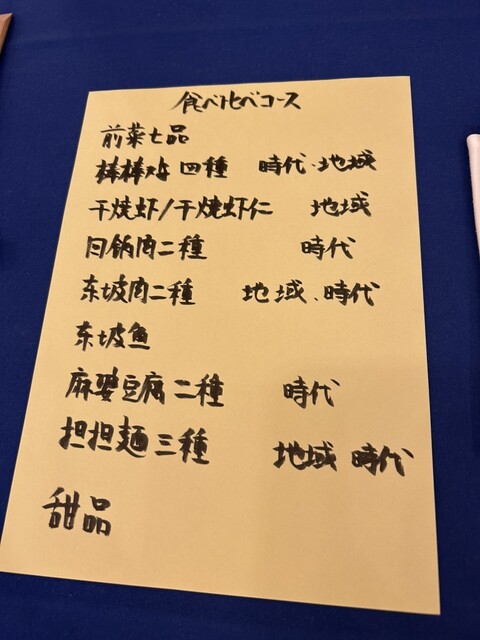 食べ比べコース
前菜七品
棒棒鸡 四種 時代・地域
干焼虾/干焼虾仁 地域
回锅肉二種 時代
东坡肉二種 地域、時代
东坡鱼
麻婆豆腐二種 時代
担担麺三種 地域 時代
甜品